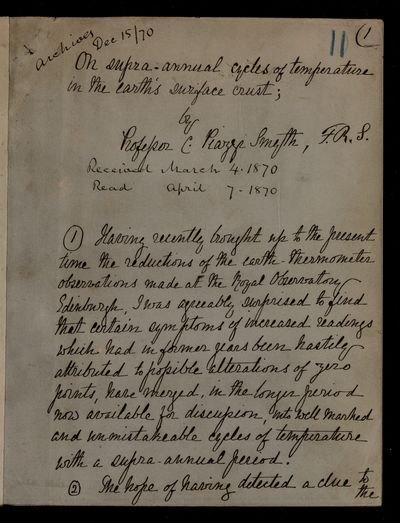 Archives
Dec 15/70
11
1
On supra-annual cycles of temperature
in the earth's surface crust;
by
Professor C Piazzi Smyth, F.R.S.
Received March 4. 1870
Read April 7 - 1870
1 Having recently brought up to the present
time the reductions of the earth-thermometer
observations made at the Royal Observatory
Edinburgh, I was agreeably surprised to find
that certain symptoms of increased readings
which had in former years been hastily
attributed to possible alterations of zero
points, have merged, in the longer period
now available for discussion, into well marked
and unmistakeable cycles of temperature
with a supra-annual period.
2 The hope of having detected a clue to
the